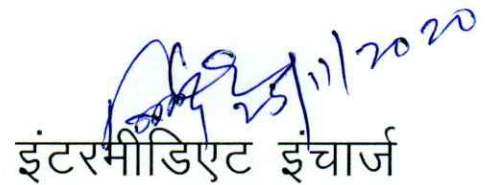 25/11/2020
इंटरमीडिएट इंचार्ज